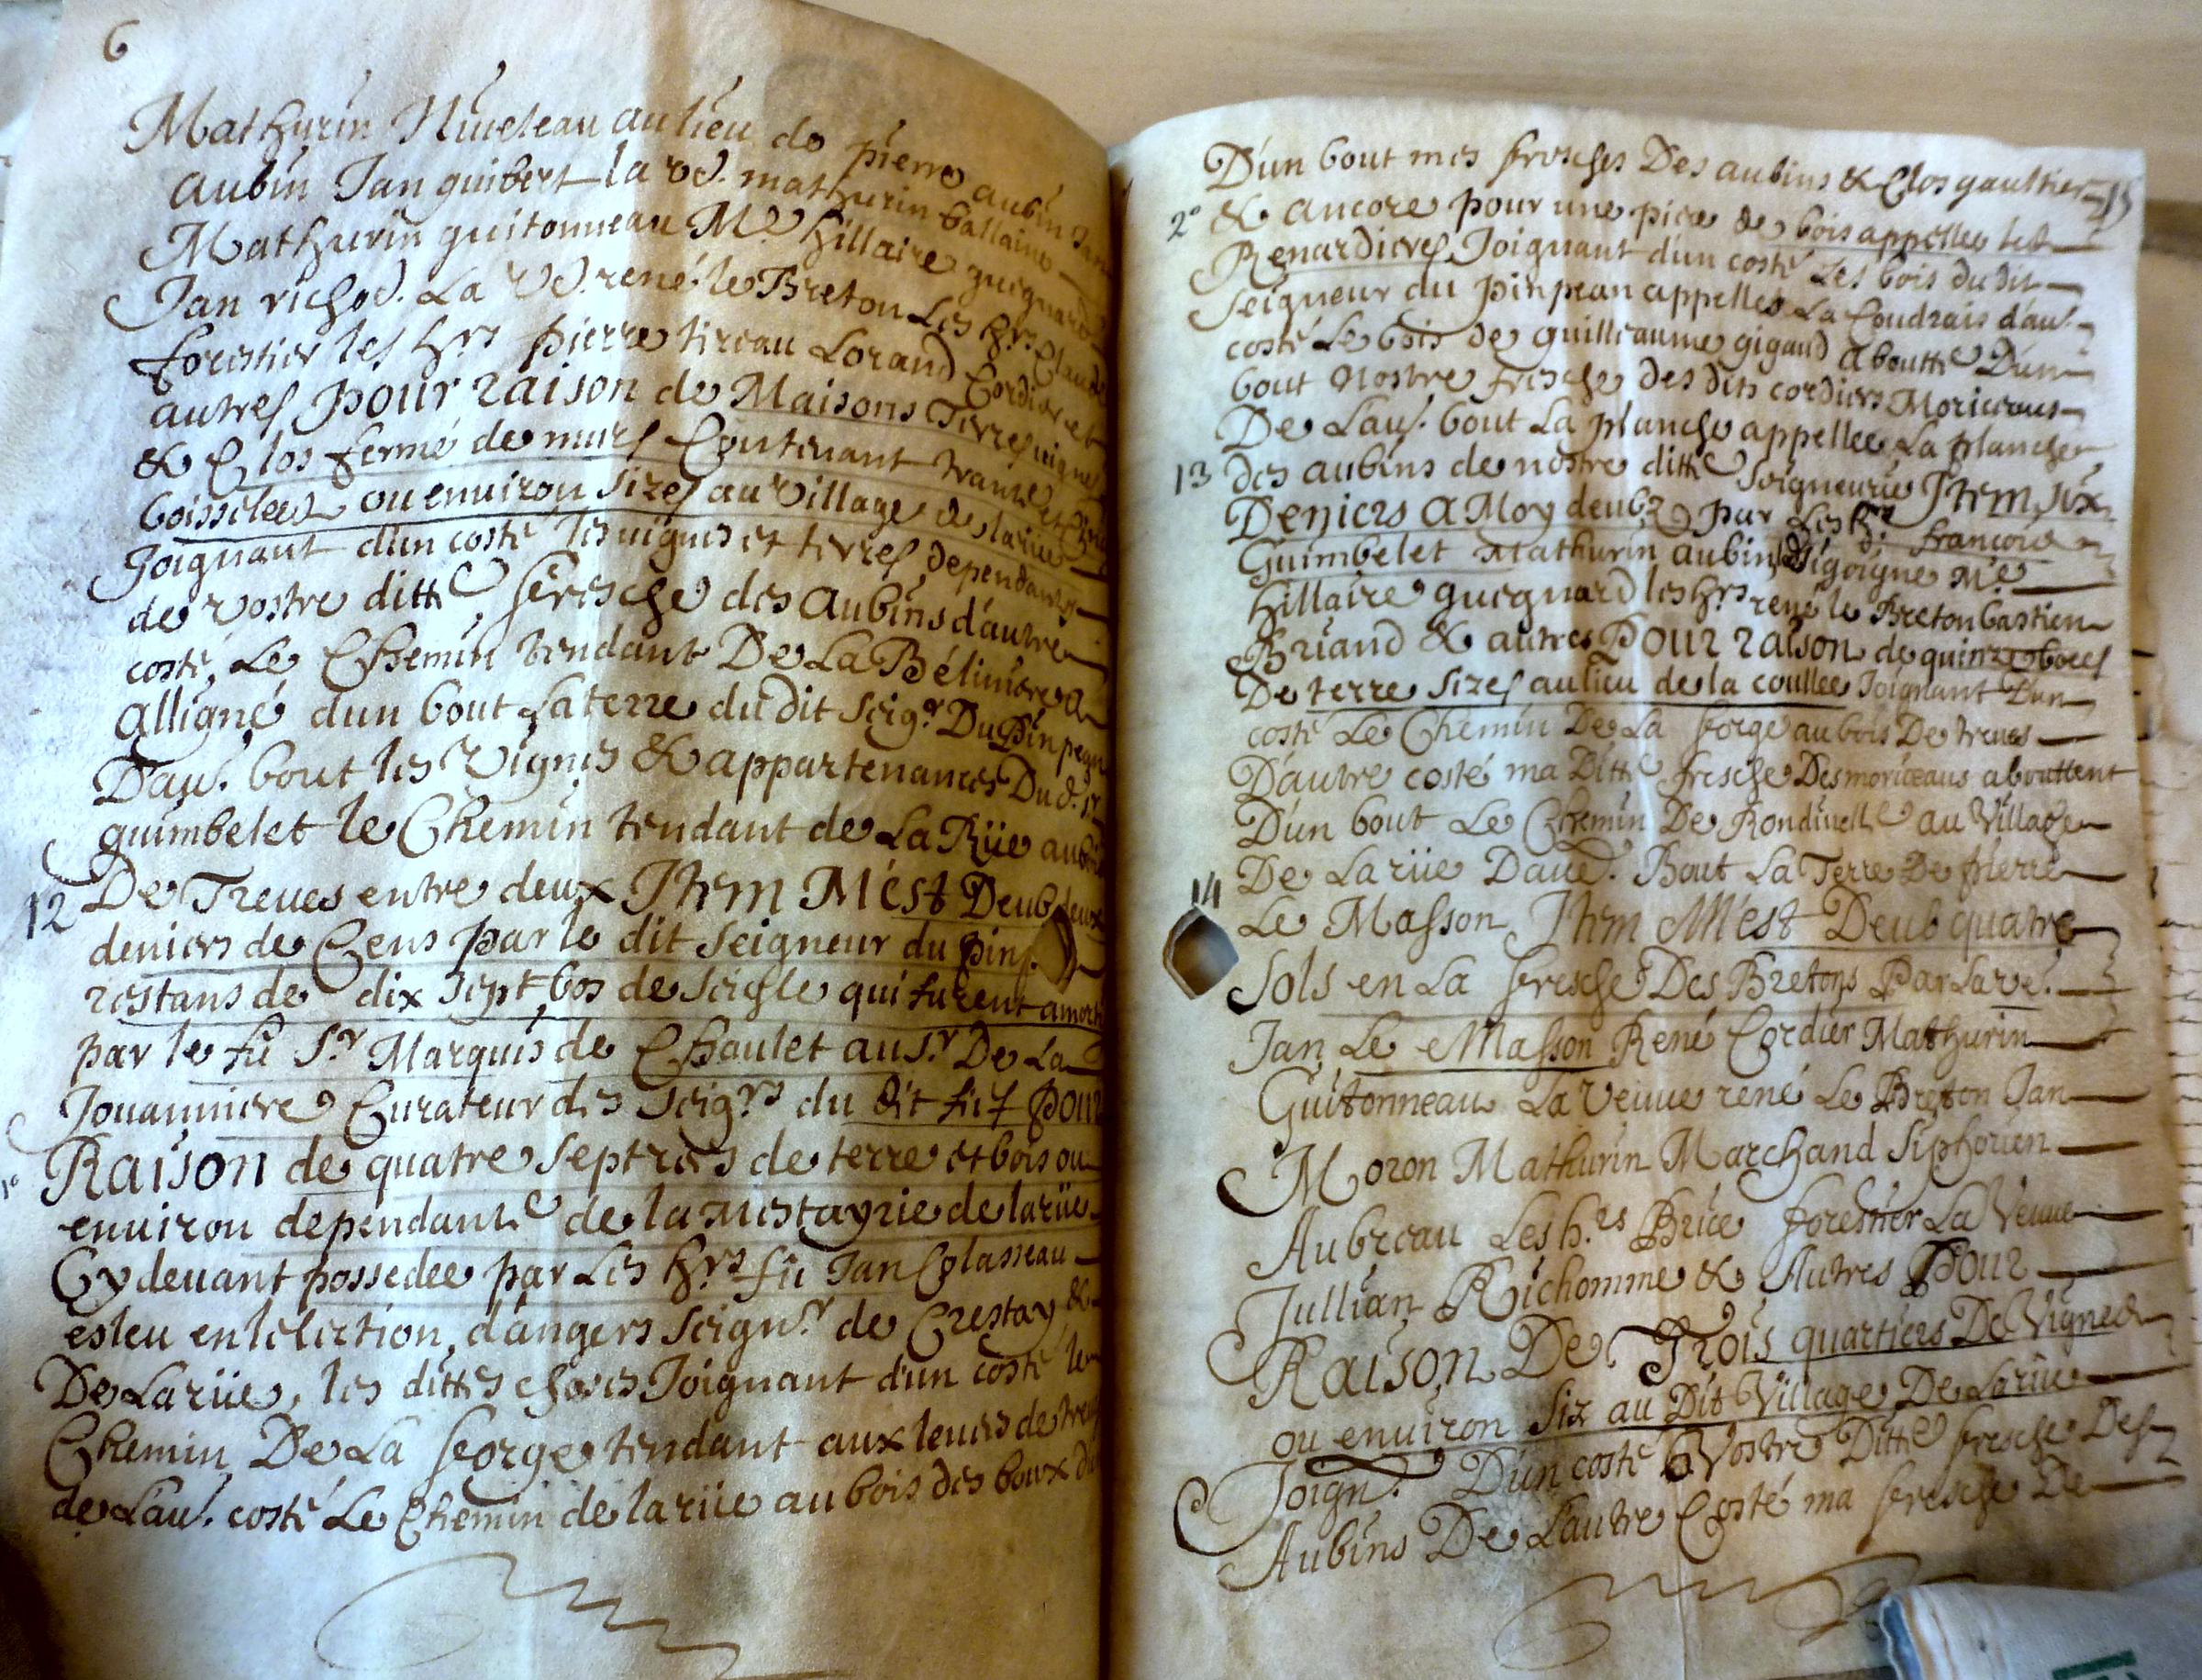 6
Mathurin Nueleau au lieu de pierre aubin Jan
aubin Jan guibert la vd. mathurin ballaine
Mathurin guitonneau Me hillaire guegnard
Jan richod. La vd. rené le Breton Les hrs Claude
forestier les hrs pierre tireau Lorand Cordier et
autres pour raison de Maisons Terres uignes
& Clos fermé de murs Contenant trante et
boissilees ou enuiron sizes au village de larüe
Joignant d'un costé les uignes et terres dependantes
de vostre ditte fresche des Aubins d'autre
costé, Le Chemin tendant De La Bélinière a
alligné dun bout La terre dudit Seigr Du Pin pean
D'aut. bout les Vignes & appartenances Dud. sr
guimbelet le Chemin tendant de La Rüe au bois
12 De Treues entre deux Itm M'est Deub deux
deniers de Cens par le dit seigneur du pin
restans de dix sept bos de seigle qui furent amortis
par le fü Sr Marquis de Chaulet au sr De La
Jouanniere Curateur des Seigrs du dit fief pour
1o Raison de quatre septrees de terre et bois ou
enuiron dependante de la mestayrie de larüe
Cy deuant possedee par Les hrs fü Jan Colasseau
esleu en lelection d'angers Seignr de Crestay &
De Larüe, les dittes choses Joignant d'un costé le
Chemin De La forge tendant aux leuées de treues
de L'aut. costé Le Chemin de la rüe au bois des boux du
D'un bout mes fresches Des aubins & Clos gaultier
2o & ancore pour une piece de bois appellee les
Renardieres Joignant d'un costé Les bois du dit
seigneur du pin pean appelles La Coudrais d'aut.
costé Le bois de guilleaume gigaud aboutté D'un
bout Nostre fresche des dits cordiers Moriceaus
De L'aut. bout La planche appellee La planche
13 des aubins de nostre ditte Seigneurie Itm six
Deniers a Moy deubz par Les hrs d. francois
Guimbelet Mathurin aubin Sigoigne Me
hillaire guegnard les hrs rené le Breton bastien
Briand & autres Pour raison de quinze boess
De terre sizes au lieu de la coullee Joignant D'un
costé Le Chemin De La forge au bois De treues
D'autre costé ma Ditte fresche Des moriceaus abouttent
D'un bout Le Chemin De Rondinelle au Village
De La rüe Daut. Bout La Terre De pierre
14 Le Masson Itm M'est Deub quatre
Sols en La fresche Des Bretons Par La ve.
Jan Le Masson René Cordier Mathurin
Guitonneau La Veuue rené Le Breton Jan
Moron Mathurin Marchand Siphorien
Aubreau Les h.rs Brice forestier La Veuue
Jullian Richomme & Autres Pour
Raison De Trois quartiers De Vignes
ou enuiron Siz au Dit Village De Larüe
Joign. D'un costé Vostre Ditte fresche Des
Aubins De L'autre Costé ma fresche De